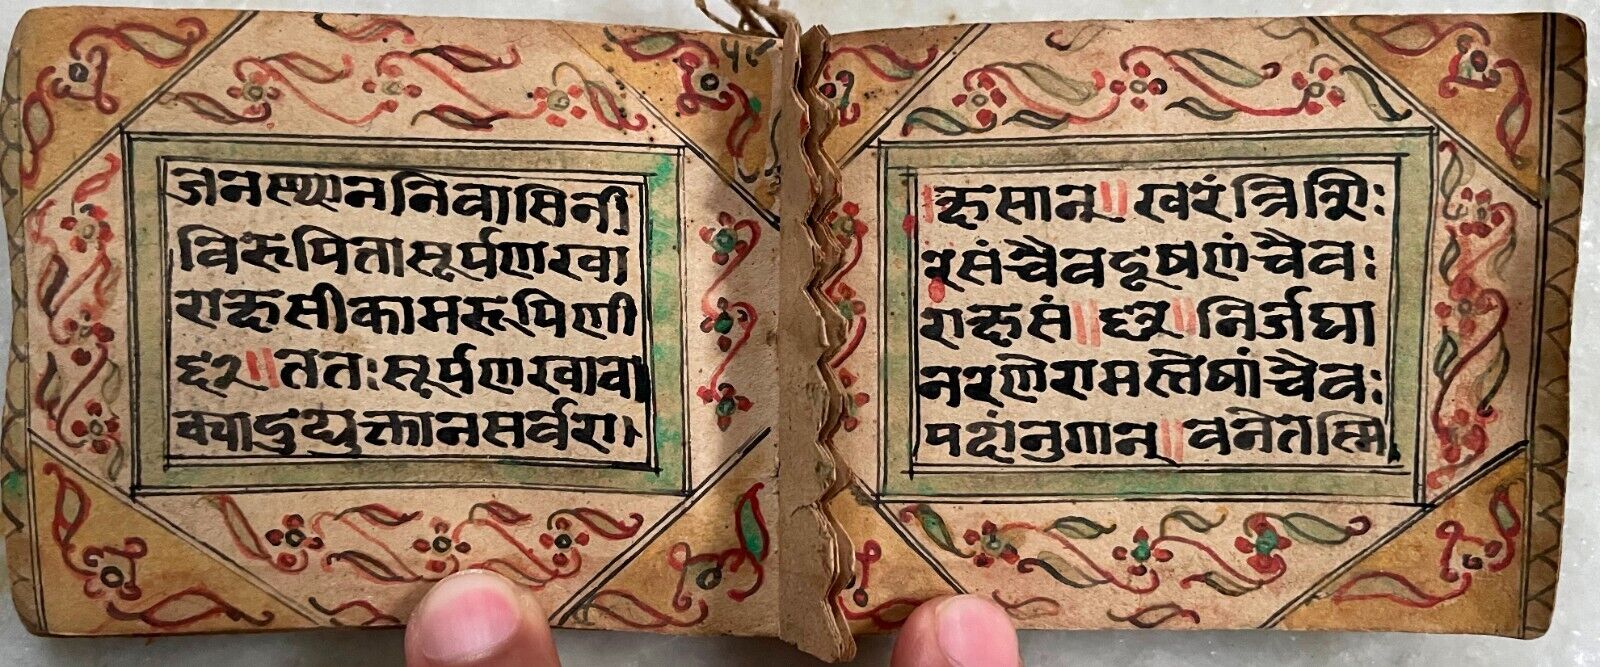 जनस्थाननिवासिनी
विरूपितासूर्पणखा
राक्षसीकामरूपिणी
॥ततःसूर्पणखावा
क्यादुद्युक्तानसर्वरा
क्षसान्॥खरंत्रिशिः
रसंचैवदूषणंचैवः
राक्षसं॥ ॥निर्जघा
नरणेरामस्तेषांचैवः
पदांनुगान्॥वनेतस्मि